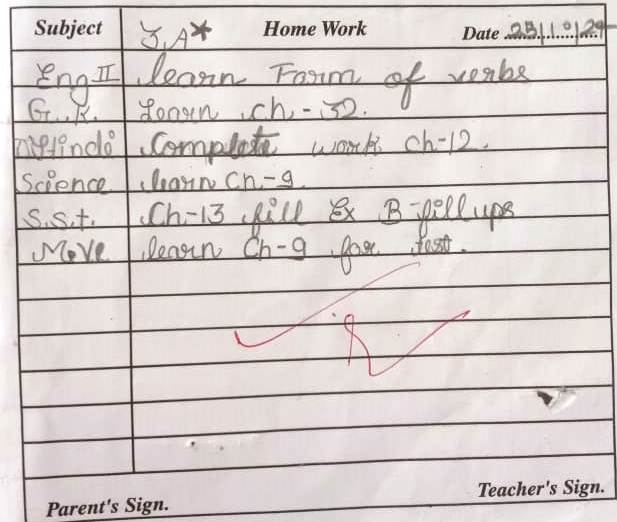 Subject Home Work Date 25/10/24
3.A*
Eng II learn Form of verbs
G.K. Learn ch-32.
Hindi Complete work ch-12.
Science learn Ch-9.
S.S.t. Ch-13 fill Ex B-fill ups
M.Ve learn Ch-9 for test.
Parent's Sign. Teacher's Sign.